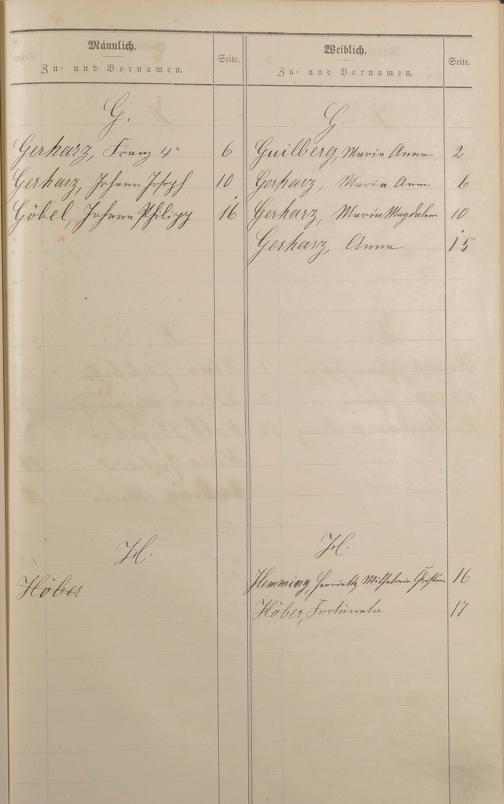 Männlich.
Zu- und Vornamen.
Seite.
G.
Gerharz, Franz 4r 6
Gerharz, Johann Joseph 10
Göbel, Johann Philipp 16
H.
Höber
Weiblich.
Zu- und Vornamen.
Seite.
G.
Guilberg, Maria Anna 2
Gerharz, Maria Anna 6
Gerharz, Maria Magdalena 10
Gerharz, Anna 15
H.
Hemming, Henriette Wilhelmine 16
Höber, Fortunata 17